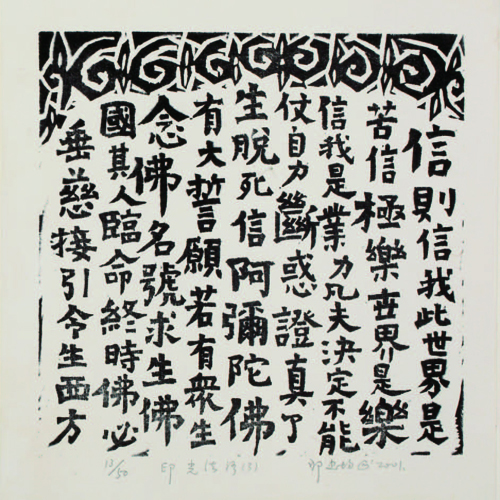 信則信我此世界是
苦信極樂世界是樂
信我是業力凡夫決定不能
仗自力斷惑證真了
生脫死信阿彌陀佛
有大誓願若有衆生
念佛名號求生佛
國其人臨命終時佛必
垂慈接引令生西方
12/50 印光法語 2001.